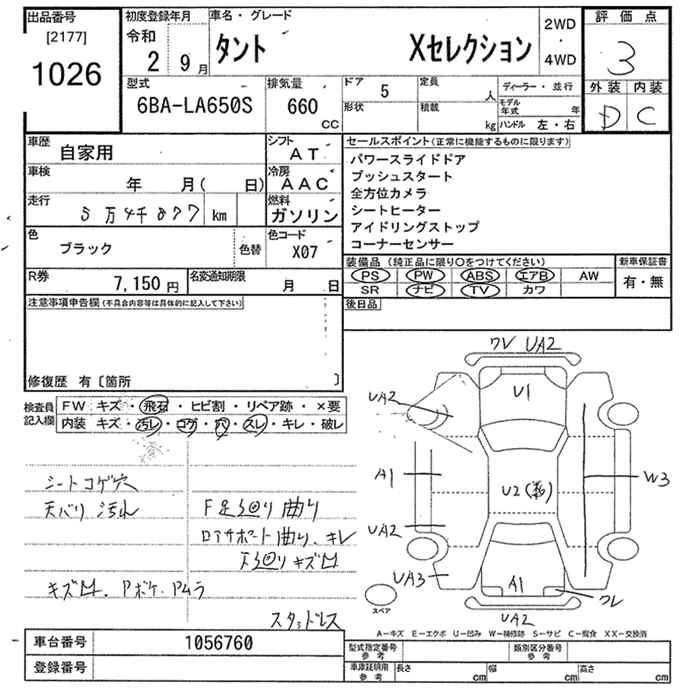 出品番号
[2177]
1026
初度登録年月
令和
2 9月
車名・グレード
タント Xセレクション
2WD
・
4WD
評価点
3
外装 内装
D C
型式
6BA-LA650S
排気量
660
CC
ドア
5
形状
定員
人
積載
kg
ディーラー・並行
モデル年式 年
ハンドル 左・右
車歴
自家用
シフト
AT
車検
年 月( 日)
冷房
AAC
走行
5万4千877 km
燃料
ガソリン
色
ブラック
色替
色コード
X07
R券
7,150円
名変通知期限
月 日
セールスポイント(正常に機能するものに限ります)
パワースライドドア
プッシュスタート
全方位カメラ
シートヒーター
アイドリングストップ
コーナーセンサー
装備品(純正品に限り○をつけてください)
PS PW ABS エアB AW
SR ナビ TV カワ
新車保証書
有・無
後日品
注意事項申告欄(不具合内容等は具体的に記入して下さい)
修復歴 有〔箇所 〕
検査員記入欄
FW キズ・飛石・ヒビ割・リペア跡・×要
内装 キズ・汚レ・コゲ・穴・スレ・キレ・破レ
シートコゲ穴
天バリ汚れ
F足廻り曲り
ロアサポート曲り、キレ
下廻りキズ凹
キズ凹、Aボケ、Aムラ
スタッドレス
ワレ UA2
U1
UA2
A1
UA2
UA3
U2
W3
A1
ワレ
UA2
スペア
A-キズ E-エクボ U-凹み W-補修跡 S-サビ C-腐食 XX-交換済
車台番号
1056760
登録番号
型式指定番号
参考
類別区分番号
参考
車庫証明用
参考
長さ cm
幅 cm
高さ cm